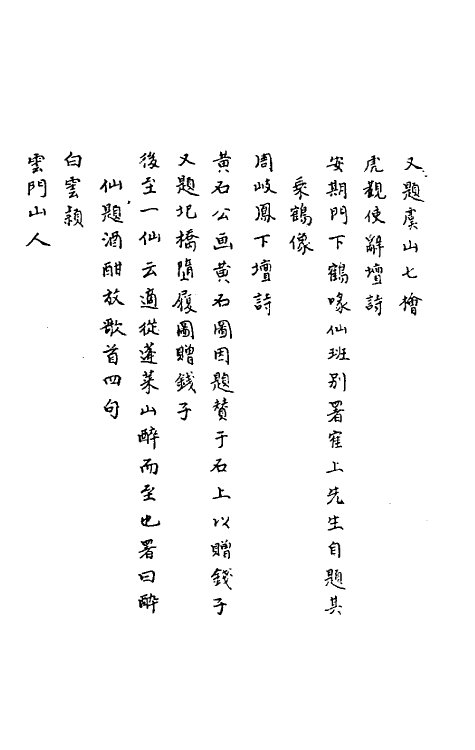 又題虞山七檜
虎觀使辭壇詩
安期門下鶴喙仙班別署崔上先生自題其
乘鶴像
周岐鳳下壇詩
黃石公画黃石圖因題賛于石上以贈錢子
又題圯橋隨履圖贈錢子
後至一仙云適從蓬萊山醉而至也署曰醉
仙題酒酣放歌首四句
白雲穎
雲門山人